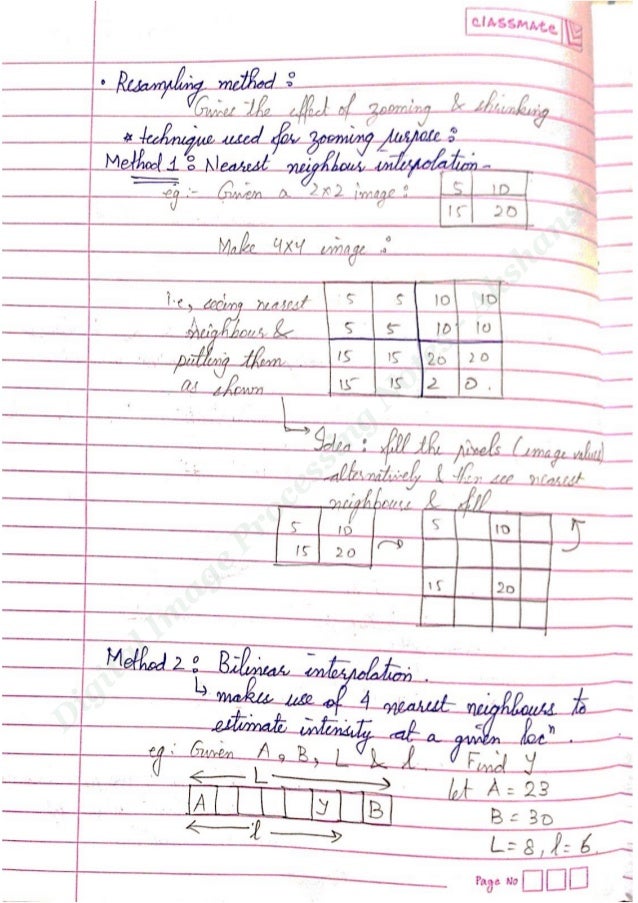 classmate
• Resampling method :
Gives the effect of zooming & shrinking
* technique used for zooming purpose :
Method 1 : Nearest neighbour interpolation -
eg :- Given a 2×2 image :
5 10
15 20
Make 4×4 image :
i.e, seeing nearest
neighbours &
putting them
as shown
5 5 10 10
5 5 10 10
15 15 20 20
15 15 2 0.
Idea : fill the pixels (image values)
alternatively & then see nearest
neighbours & fill
5 10
15 20
5 10
15 20
Method 2 : Bilinear interpolation .
makes use of 4 nearest neighbours to
estimate intensity at a given locⁿ .
eg : Given A, B, L & l. Find Y
L
A Y B
l
let A = 23
B = 30
L = 8, l = 6.
Page No
Digital Image Processing Notes